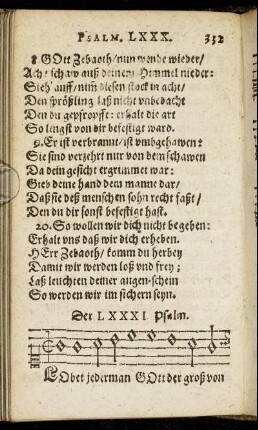 PSALM. LXXX. 332
8 GOtt Zebaoth/nun wende wieder/
Ach! schaw auß deinem Himmel nieder:
Sieh' auff/nim̃ diesen stock in acht/
Den sprößling laß nicht vnbedacht
Den du gepfropffet: erhalt die art
So lengst von dir befestiget ward.
9. Er ist verbrannt/ist vmbgehawen:
Sie sind verzehrt nur von dem schawen
Da dein gesicht ergrimmet war:
Gieb deine hand dem manne dar/
Daß sie deß menschen sohn recht faßt/
Den du dir sonst befestigt hast.
20. So wollen wir dich nicht begeben:
Erhalt vns daß wir dich erheben.
HErr Zebaoth/ komm du herbey
Damit wir werden loß vnd frey;
Laß leuchten deiner augen-schein
So werden wir im sichern seyn.
Der LXXXI Psalm.
LObet jederman GOtt der groß von